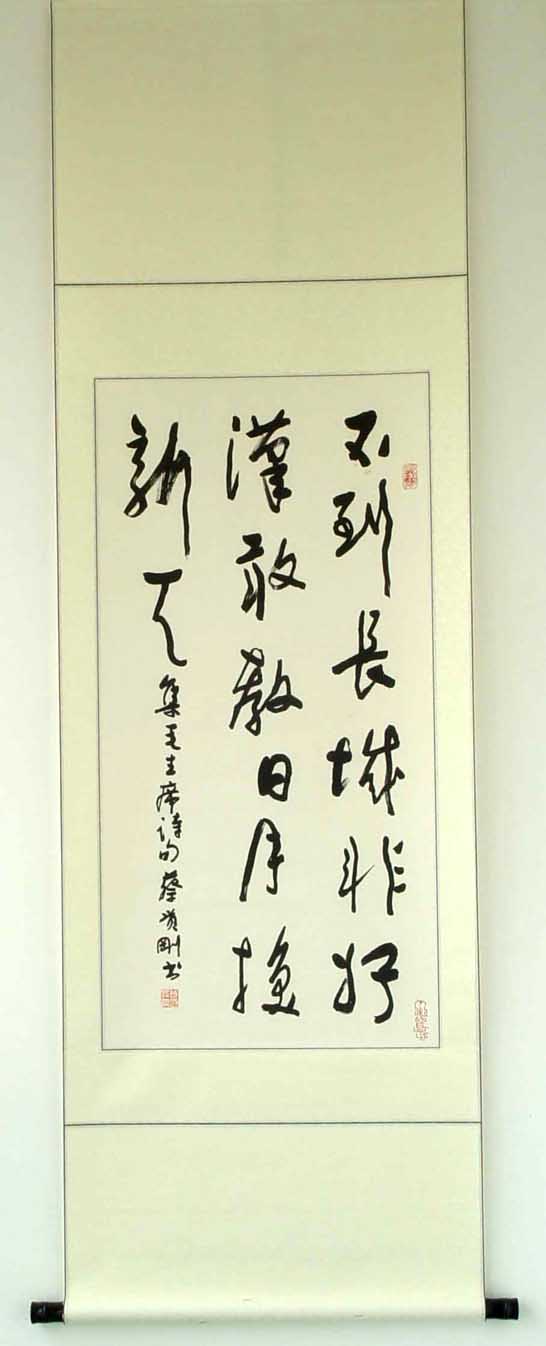 不到長城非好
漢敢教日月換
新天 集毛主席诗句 蔡剛书